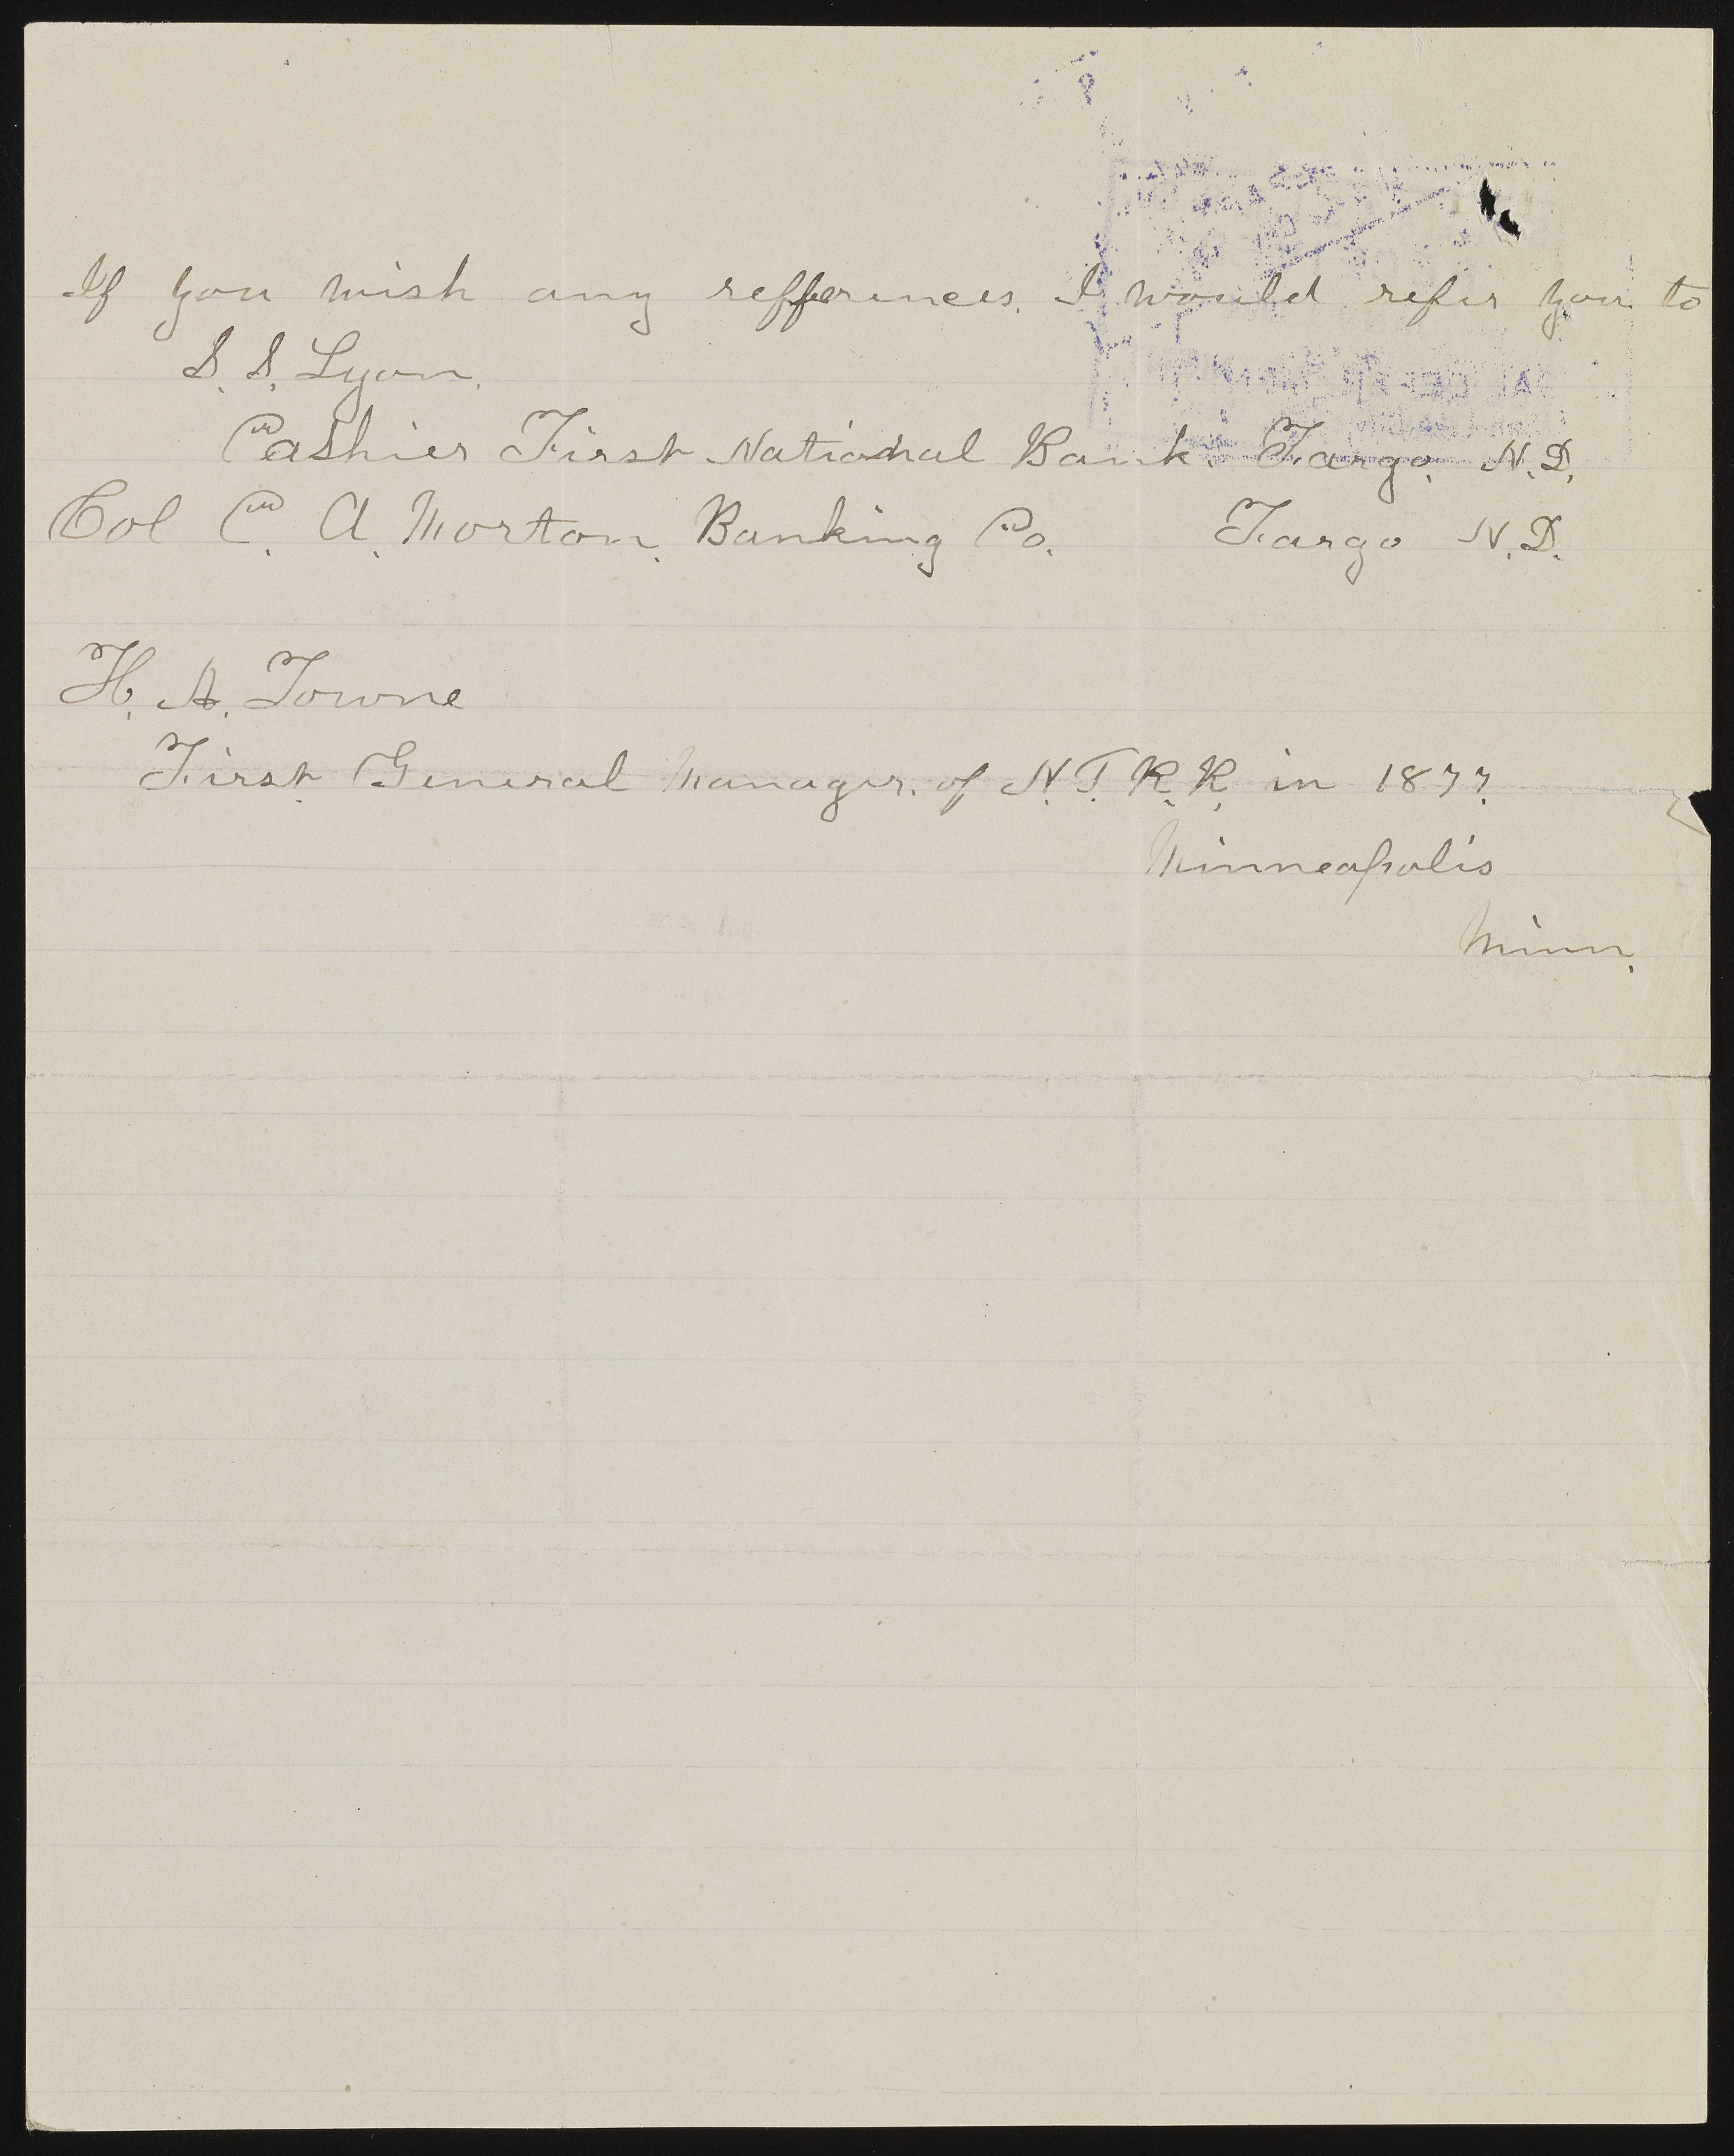 If you wish any refferences, I would refer you to
S. S. Lyon.
Cashier First National Bank. Fargo, N.D.
Col C. A. Morton, Banking Co. Fargo N.D.
H. A. Towne
First General Manager. of N. T. R. R. in 1877.
Minneapolis
Minn.